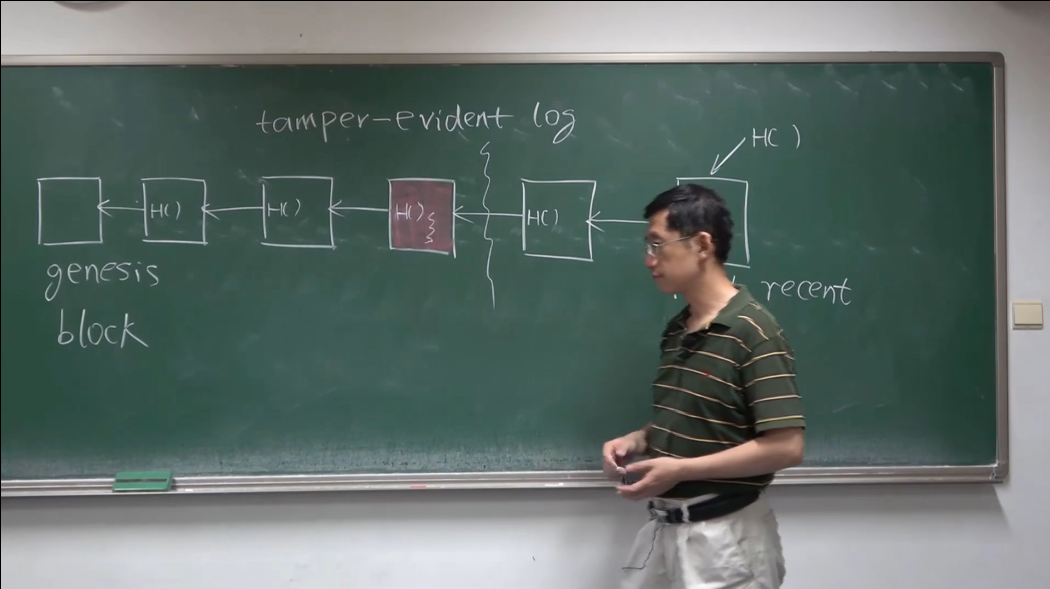 tamper-evident log
H( )
H( ) H( ) H( ) H( )
genesis
block
recent